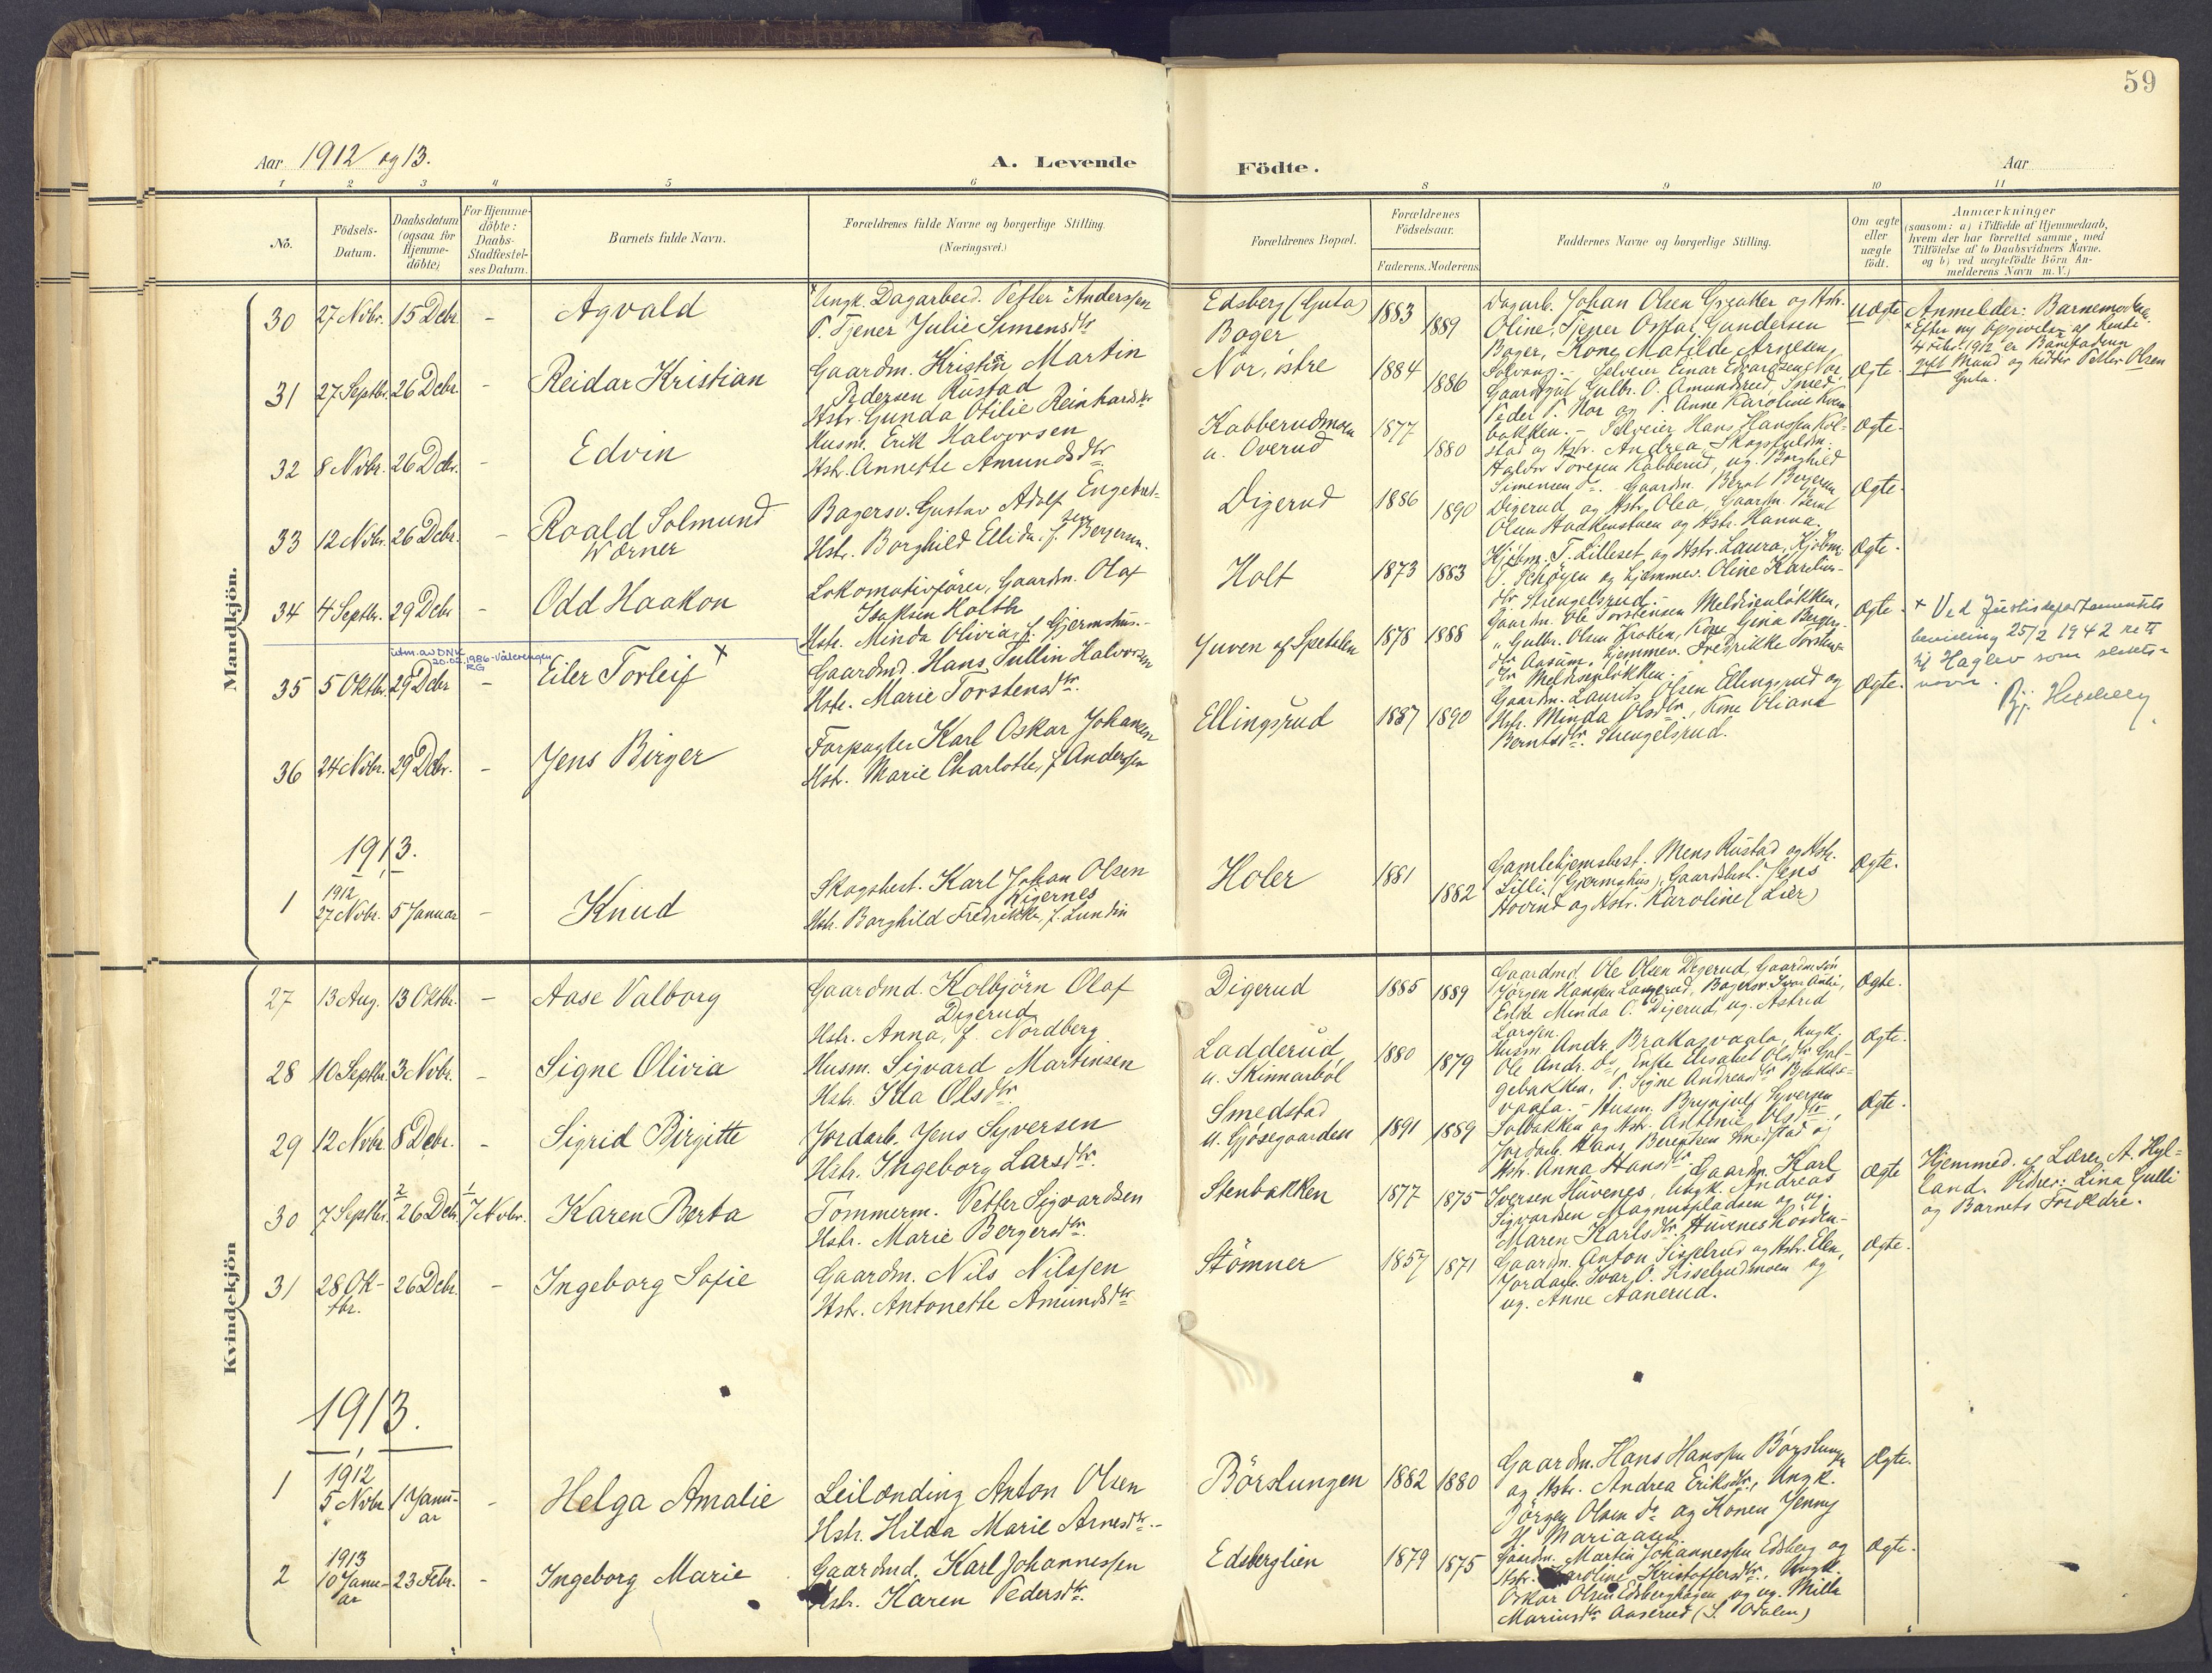 59
Aar 1912 og 13.
A. Levende
Födte.
Aar
1 2 3 4 5 6 8 9 10 11
No.
Födsels-
Datum.
Daabsdatum
(ogsaa for
Hjemme-
döbte)
For Hjemme-
döbte:
Daabs-
Stadfæstel-
ses Datum.
Barnets fulde Navn.
Forældrenes fulde Navne og borgerlige Stilling
(Næringsvei.)
Forældrenes Bopæl.
Forældrenes
Födselsaar.
Faderens. Moderens.
Faddernes Navne og borgerlige Stilling.
Om ægte
eller
uægte
födt.
Anmærkninger
(saasom: a) i Tilfælde af Hjemmedaab,
hvem der har forrettet samme, med
Tilföielse af to Daabsvidners Navne.
og b) ved uægtefödte Börn An-
melderens Navn m. V.)
Mandkjön.
30 27 Novbr. 15 Decbr - Agvald
Ungk. Dagarbeid. Petter Anderssen
P. Tjener Julie Simensdtr
Edsberg (Guta)
Boger
1883 1889
Dagarb. Johan Olsen Greaker og Hstr.
Oline, Tjener Gundersen
Boger, Kone Matilde Arnesen,
uægte
Anmelder: Barnemoderen.
gift Mand og hedder Petter Olsen
Guta.
31 27 Septbr. 26 Decbr - Reidar Kristian
Gaardm. Kristian Martin
Pedersen Rustad
Hstr. Gunda Otilie Reinhardsdtr
Nor, östre
1884 1886
Solvang. - Selveier Einar Edvardsen, Nor,
Gaardgut Gulbr. O. Amundsrud, Smed
Peder P. Nor og P. Anne Karoline
bakken. -
Ægte.
32 8 Novbr. 26 Decbr. - Edvin
Husm. Erik Halvorsen
Hstr. Annette Amundsdtr
Kabberudmoen
u. Overud
1877 1880
Selveier Hans Hanssen Kol-
stad og Hstr. Andrea, Skogsfuldm.
Halvor Toresen Kabberud, ug. Borghild
Simensen do.
Ægte.
33 12 Novbr. 26 Decbr. - Roald Solmund
Wærner
Bagersv. Gustav Adolf Engebret-
sen
Hstr. Borghild Ellida, f. Bergersen.
Digerud
1886 1890
Gaardm. Bernt Bergersen
Digerud og Hstr. Olea, Gaardm. Bernt
Olsen og Hstr. Hanna.
Ægte.
34 4 Septbr. 29 Decbr - Odd Haakon
Lokomotivförer, Gaardm. Olaf
Isaksen Holth
Hstr. Minda Olivia, f. Gjermshus. -
Holt
1873 1883
Kjöbm. T. Lilleset og Hstr. Laura, Kjöbm.
Schöyen og hjemmev. Oline Karelius-
dtr Strengelsrud. -
Ægte.
utm. av DNK
20.02.1986 - Vålerengen
RG
35 5 Oktbr. 29 Decbr - Eiler Torleif x
Gaardmd. Hans Tullin Halvorsen
Hstr. Marie Torstensdtr.
Juven af Spetalen
1878 1888
Gaardm. Ole Torstensen Meldisenlökken,
" Gulbr. Olsen Kroken, Kone Gina Berger-
dtr Aasum, hjemmev. Fredrikke Torstens-
dtr Meldisenlökken.
Ægte.
x Ved Justisdepartementets
bevilling 25/2 1942 rett
til Haglev som slekts-
navn.
36 24 Novbr. 29 Decbr. - Jens Birger
Forpagter Karl Oskar Johansen
Hstr. Marie Charlotte, f. Anderssen
Ellingsrud
1887 1890
Gaardm. Laurits Olsen Ellingsrud og
Hstr. Minda Olsdtr, Kone Oliana
Berntsdtr. Strengelsrud.
Ægte.
1913.
1 1912
27 Novbr. 5 Januar - Knud
Skogsbest. Karl Johan Olsen
Kigernes
Hstr. Borghild Fredrikke, f. Lundin
Holer
1881 1882
Gamlehjemsbest. Mens Rustad og Hstr.
Lilli, (Gjermshus), Gaardsbest. Jens
Hovrud og Hstr. Karoline (Lier)
Ægte.
Kvindekjön
27 13 Aug. 13 Oktbr. - Aase Valborg
Gaardmd. Kolbjörn Olaf
Digerud
Hstr. Anna, f. Nordberg
Digerud
1885 1889
Gaardmd. Ole Olsen Digerud, Gaardm.sön
Jörgen Hanssen Langerud, Bagersv.
Enke Minda O. Digerud, ug. Astrid
Larssen.
Ægte.
28 10 Septbr. 3 Novbr. - Signe Olivia
Husm. Sigvard Martinsen
Hstr. Ida Olsdtr.
Ladderud
u. Skinnarböl
1880 1879
Husm. Andr. Brakasvaala, Ungk.
Ole Andr. do, Enke Elisabet Olsdtr Gal-
gebakken, P. Signe Andreasdtr Brakas-
vaala. -
Ægte.
29 12 Novbr. 8 Decbr. - Sigrid Birgitte
Jordarb. Jens Syversen
Hstr. Ingeborg Larsdtr.
Smedstad
u. Gjösegaarden
1891 1889
Husm. Brynjulf Syversen
Solbakken og Hstr. Antonie Olsdtr,
Jordarb. Hans Berentsen Smedstad og
Hstr. Anna Hansdtr.
Ægte.
30 7 Septbr. 2 26 Decbr. 1 7 Novbr. Karen Berta
Tommerm. Petter Sigvardsen
Hstr. Marie Bergersdtr.
Stenbakken
1877 1875
Gaardm. Karl
Iversen Huvenes, Ungk. Andreas
Sigvardsen Magnuspladsen og ug.
Maren Karlsdtr. Huvenes
Ægte
Hjemmed. af Lærer A. Hyl-
land. Vidner: Lina Gulli
og Barnets Forældre.
31 28 Ok-
tbr. 26 Decbr. - Ingeborg Sofie
Gaardm. Nils Nilssen
Hstr. Antonette Amundsdtr
Stömner
1857 1871
Gaardm. Anton Sisselrud og Hstr. Elen,
Jordarb. Ivar O. Sisselrudmoen og
ug. Anne Aanerud.
Ægte.
1913.
1 1912
5 Novbr 1 Janu-
ar - Helga Amalie
Leilænding Anton Olsen
Hstr. Hilda Marie Arnesdtr. -
Börslungen
1882 1880
Gaardm. Hans Hanssen Börslungen
og Hstr. Andrea Eriksdtr, Ungk.
Jörgen Olsen do og Konen Jenny
Mariaasen.
Ægte.
2 1913
10 Janu-
ar 23 Febr. - Ingeborg Marie
Gaardmd. Karl Johannessen
Hstr. Karen Pedersdtr.
Edsberglien
1879 1875
Gaardm. Martin Johannessen Edsberg og
Hstr. Karoline Kristoffersdtr, Ungk.
Oskar Olsen Edsberghagen og ug. Milla
Mariusdtr Aaserud (S. Odalen)
Ægte.